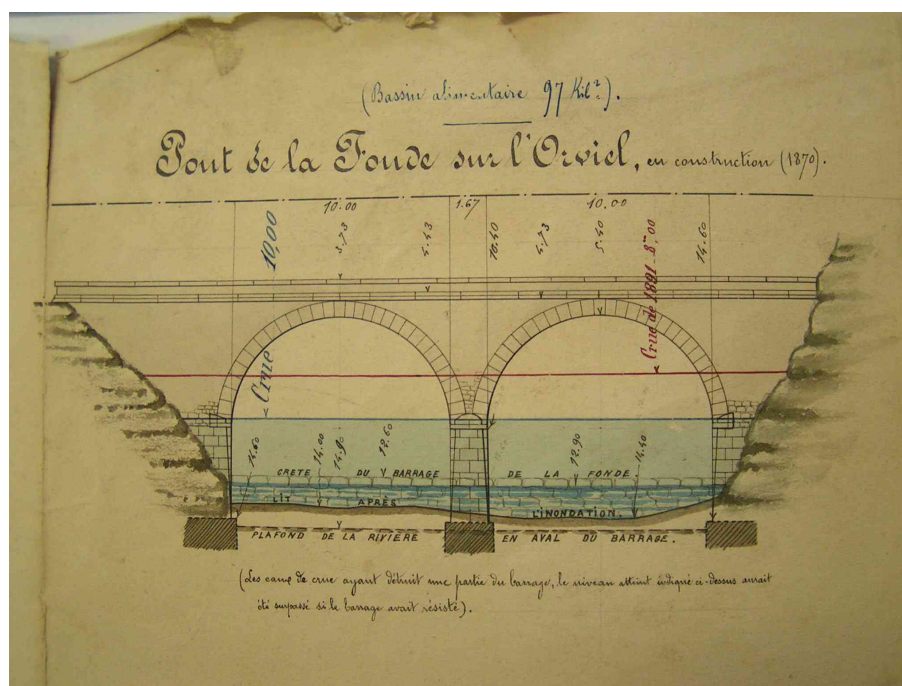 (Bassin alimentaire 97 Kil²).
Pont de la Fonde sur l'Orviel, en construction (1870).
10.00 1.67 10,00
10,00 3.73 4.43 10.40 4.73 5.40 Crue de 1891_8m,00 14.60
Crue
14.60 14.00 14.90 12.60 12.90 14.40
CRETE DU BARRAGE DE LA FONDE
LIT APRÈS L'INONDATION.
PLAFOND DE LA RIVIERE EN AVAL DU BARRAGE.
(Les eaux de crue ayant détruit une partie du barrage, le niveau atteint indiqué ci-dessus aurait
été surpassé si le barrage avait résisté).